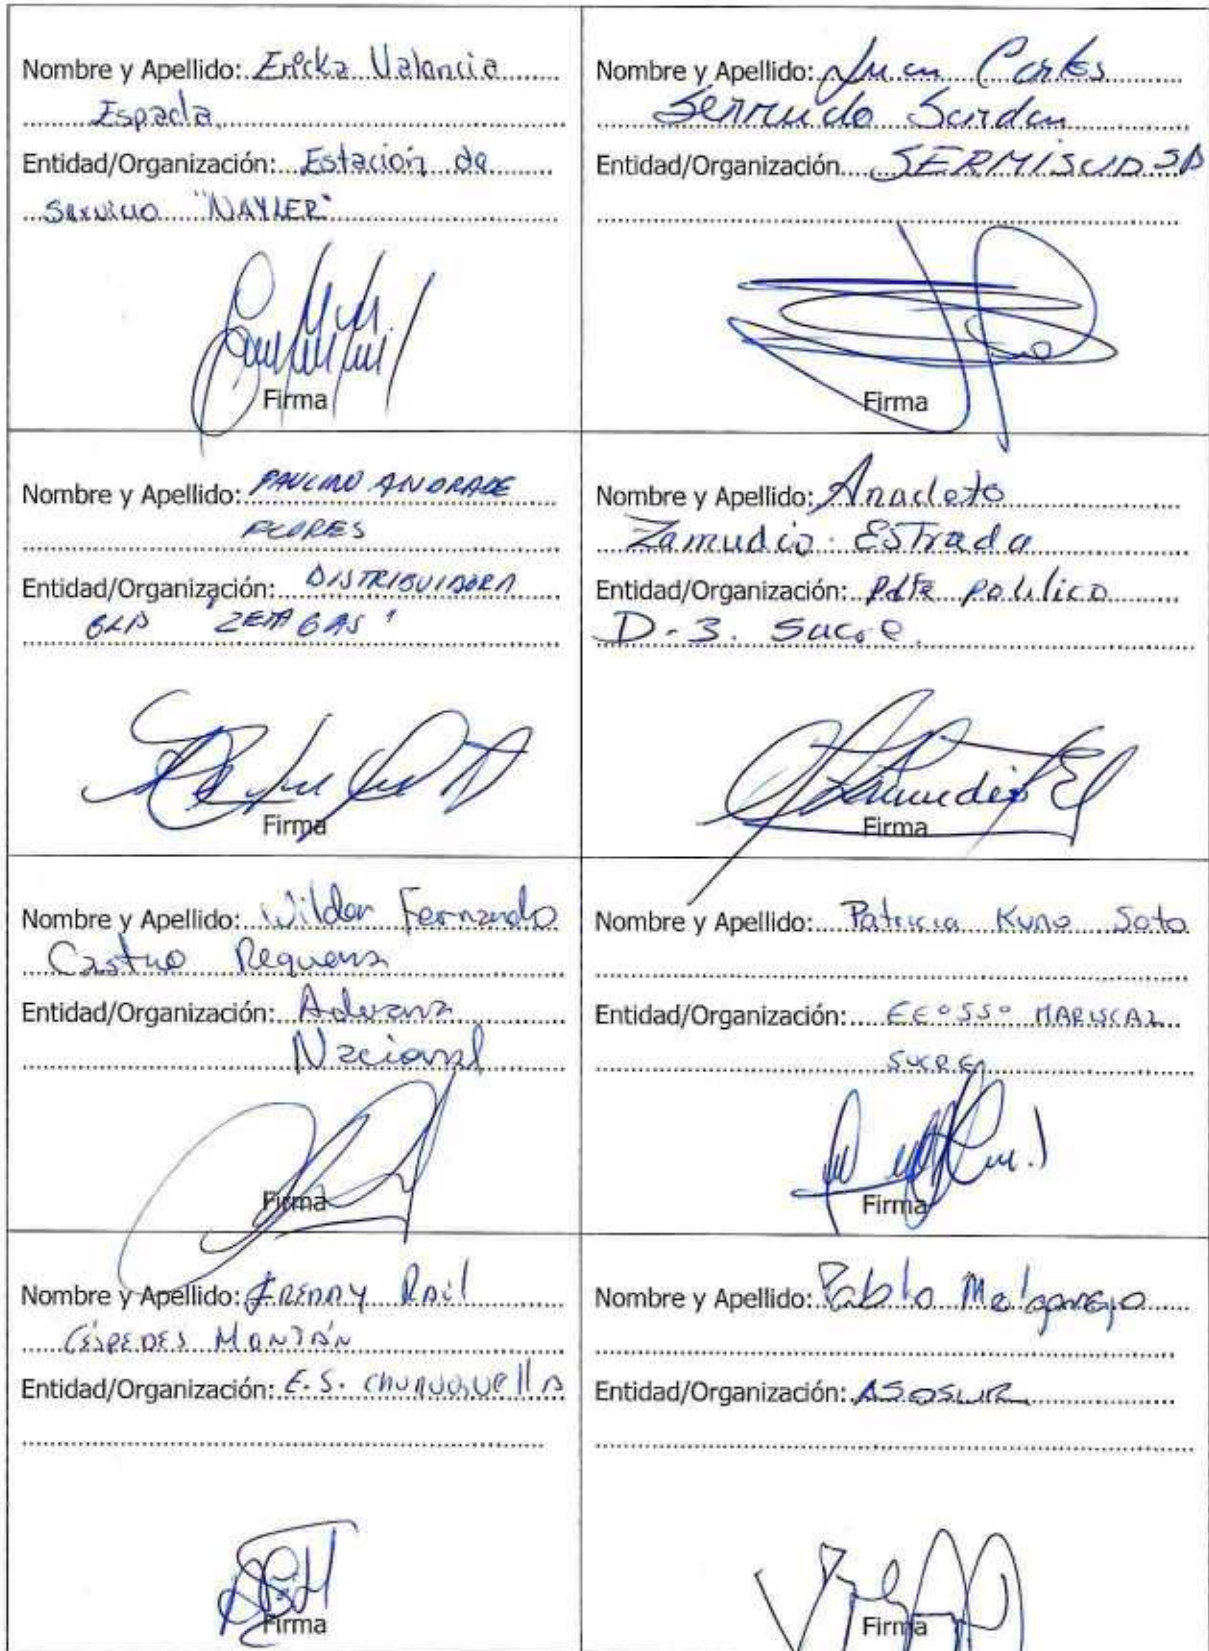 Nombre y Apellido: Ericka Valancia
Espada
Entidad/Organización: Estación de
Servicio "NAYLER"
Firma
Nombre y Apellido: Juan Carlos
Serrudo Sardan
Entidad/Organización SERMISUD SA
Firma
Nombre y Apellido: PAULINO ANDRADE
FLORES
Entidad/Organización: DISTRIBUIDORA
GLP "ZETA GAS"
Firma
Nombre y Apellido: Anacleto
Zamudio EStrada
Entidad/Organización: Pdte
D-3. Sucre.
Firma
Nombre y Apellido: Wilder Fernando
Castro Requena
Entidad/Organización: Aduana
Nacional
Firma
Nombre y Apellido: Patricia Kuno Soto
Entidad/Organización: EE°SS° MARISCAL
SUCRE
Firma
Nombre y Apellido: FREDDY Raúl
CÉSPEDES MONTÁN
Entidad/Organización: E.S. CHURUQUELLA
Firma
Nombre y Apellido: Pablo Melgarejo
Entidad/Organización: ASOSUR
Firma